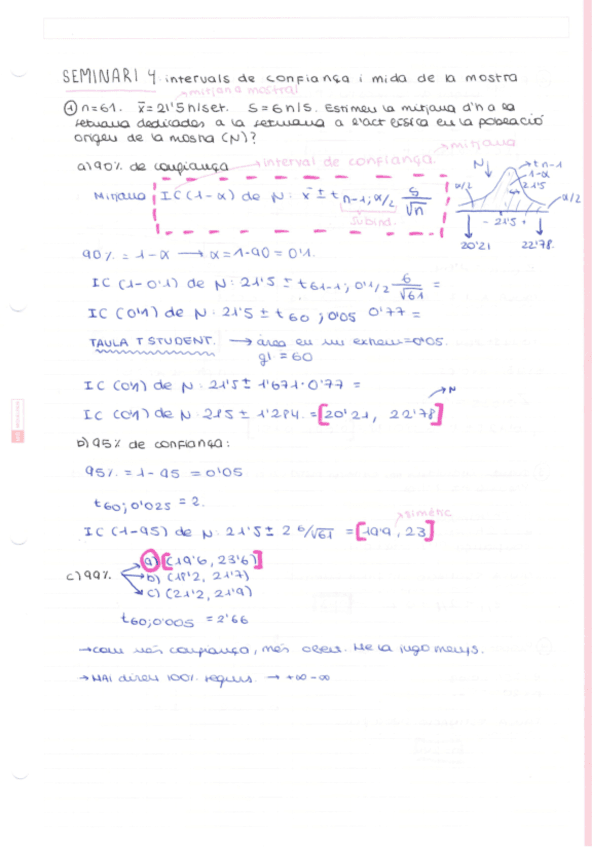 SEMINARI 4 intervals de confiança i mida de la mostra
mitjana mostral
① n=61. x̄=21'5h/set. S=6h/s. Estimeu la mitjana d'h a la
setmana dedicades a la setmana a l'act física en la població
origen de la mostra (N)?
mitjana
a) 90% de confiança
interval de confiança
Mitjana IC (1-α) de N: x̄ ± t n-1; α/2 S/√n
subind.
N
t n-1
1-α
21'5
α/2
α/2
- 21'5 +
20'21 22'78.
90% = 1-α → α=1-90 = 0'1.
IC (1-0'1) de N: 21'5 ± t 61-1; 0'1/2 6/√61 =
IC (0'1) de N: 21'5 ± t 60; 0'05 0'77 =
TAULA T STUDENT. → àrea en un extrem=0'05.
gl = 60
IC (0'1) de N: 21'5 ± 1'671·0'77 =
IC (0'1) de N: 21'5 ± 1'284. = [20'21, 22'78] → N
b) 95% de confiança:
95% = 1-95 = 0'05
t60; 0'025 = 2.
simètric
IC (1-95) de N: 21'5 ± 2 6/√61 = [19'9, 23]
c) 99% a) [(19'6, 23'6)]
b) (18'2, 21'7)
c) (21'2, 21'9)
t60; 0'005 = 2'66
→ com més confiança, més obert. Me la jugo menys.
→ MAI direu 100% segurs → +∞ -∞